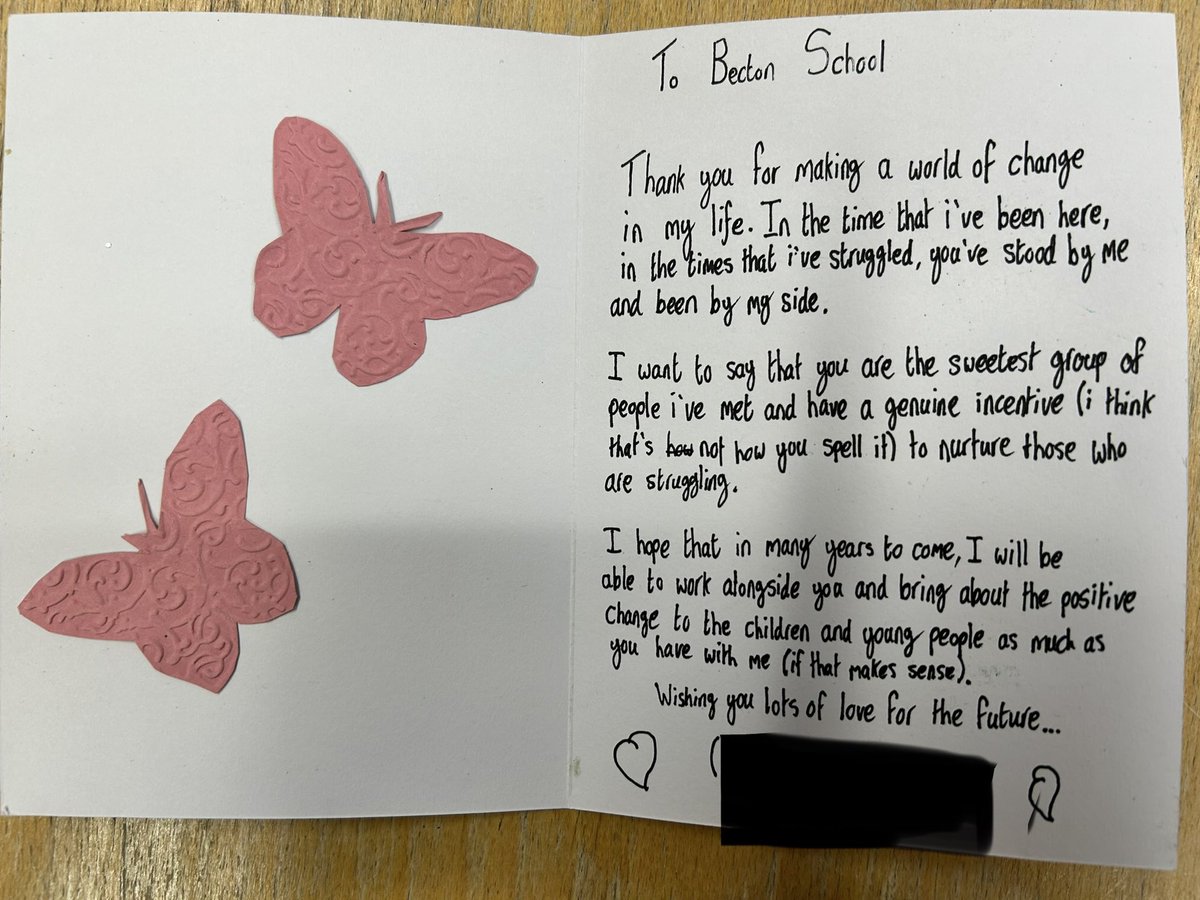 To Becton School
Thank you for making a world of change
in my life. In the time that i've been here,
in the times that i've struggled, you've stood by me
and been by my side.
I want to say that you are the sweetest group of
people i've met and have a genuine incentive (i think
that's how not how you spell it) to nurture those who
are struggling.
I hope that in many years to come, I will be
able to work alongside you and bring about the positive
change to the children and young people as much as
you have with me (if that makes sense).
Wishing you lots of love for the future...